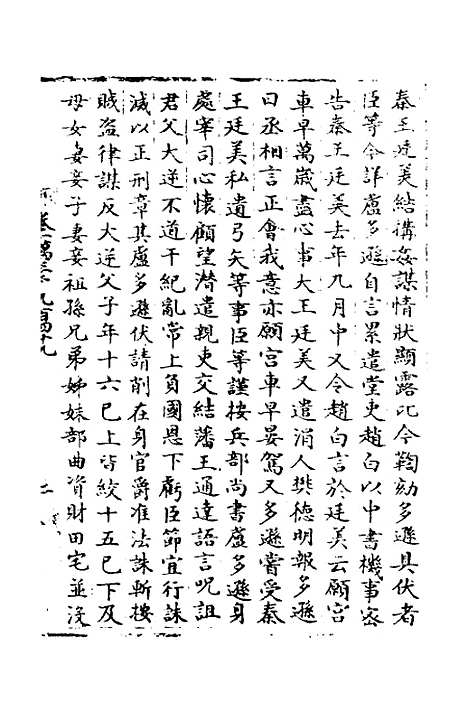 秦王廷美結構姦謀情狀顯露比今鞫劾多遜具伏者
臣等今詳盧多遜自言累遣堂吏趙白以中書機事密
告秦王廷美去年九月中又令趙白言於廷美云願宮
車早萬歲盡心事大王廷美又遣涓人樊德明報多遜
曰丞相言正會我意亦願宮車早晏駕又多遜嘗受秦
王廷美私遺弓矢等事臣等謹按兵部尚書盧多遜身
處宰司心懷顧望潛遣親吏交結藩王通達語言呪詛
君父大逆不道干紀亂常上負國恩下虧臣節宜行誅
滅以正刑章其盧多遜伏請削在身官爵准法誅斬按
賊盜律謀反大逆父子年十六已上皆絞十五已下及
母女妻妾子妻妾祖孫兄弟姊妹部曲資財田宅並沒
卷一萬三千九百四十九